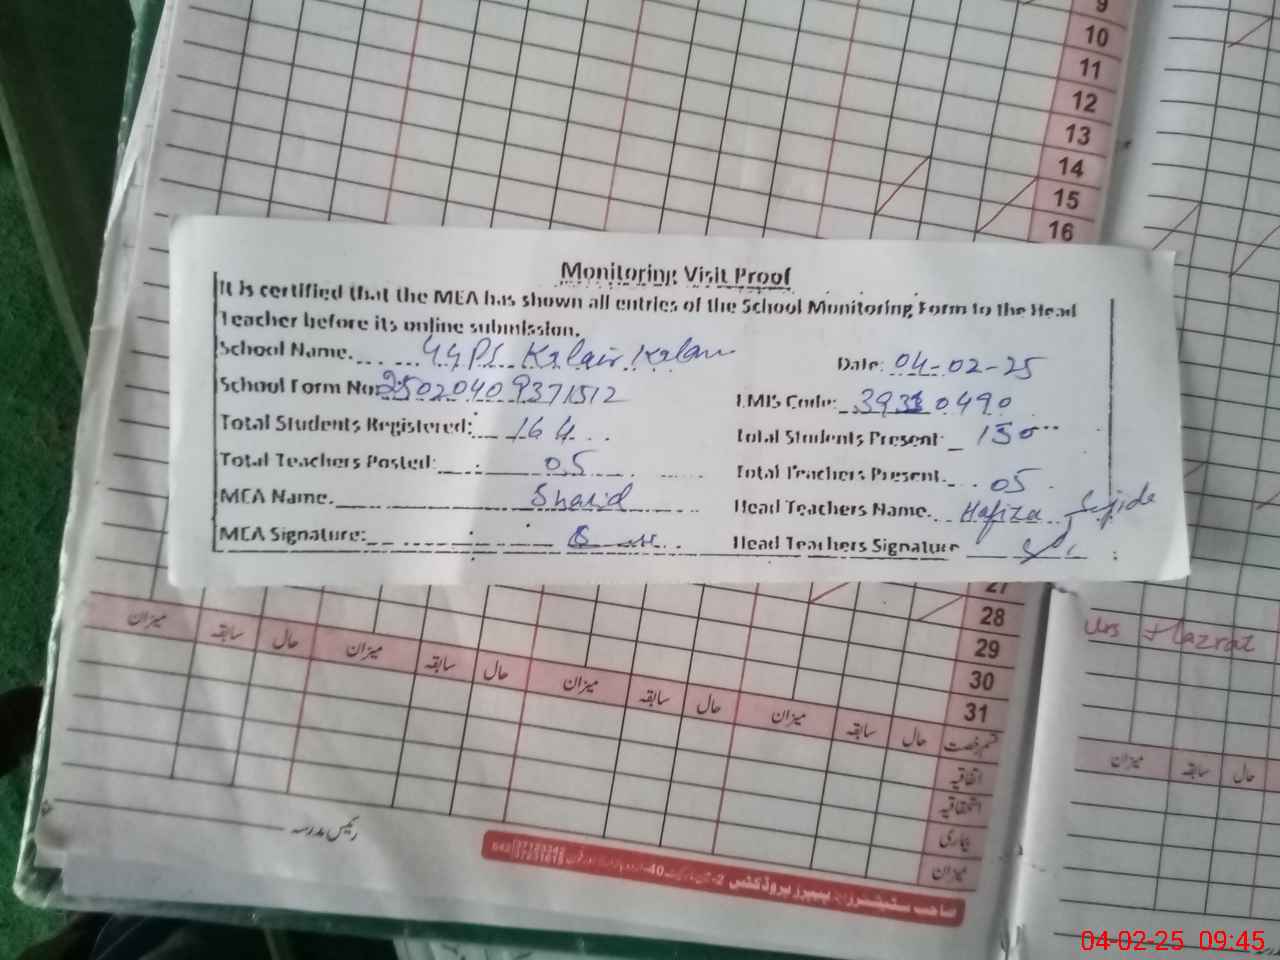 9
10
11
12
13
14
15
16
Monitoring Visit Proof
It is certified that the MEA has shown all entries of the School Monitoring Form to the Head
Teacher before its online submission.
School Name. GGPS Kalair Kalan Date: 04-02-25
School Form No: 25020409371512 EMIS Code: 39310490
Total Students Registered: 164 Total Students Present: 150
Total Teachers Posted: 05 Total Teachers Present. 05
MEA Name. Shahid Head Teachers Name. Hafiza Sajida
MEA Signature: Head Teachers Signature
27
28
29
30
31
Urs Hazrat
میزان سابقہ حال میزان سابقہ حال میزان سابقہ حال میزان سابقہ حال قسم رخصت
اتفاقیہ
استحقاقیہ
بیماری
میزان
میزان سابقہ حال
رئیس مدرسہ
04-02-25 09:45